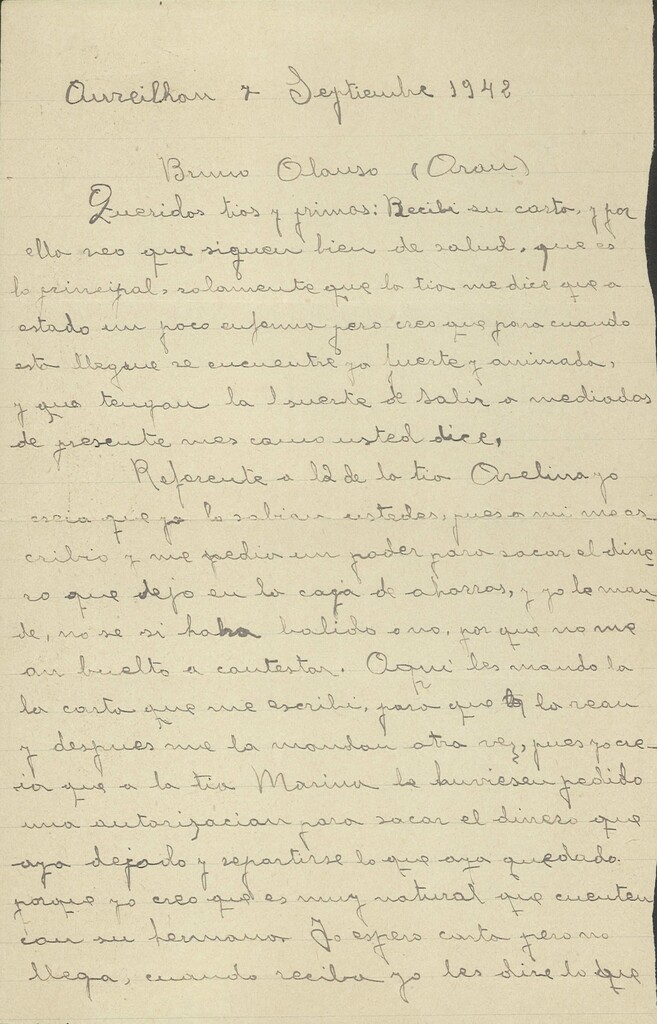 Aureilhan 7 Septiembre 1942
Bruno Alonso (Oran)
Queridos tios y primos: Recibi su carta, y por
ella veo que siguen bien de salud, que es
lo principal, solamente que la tia me dice que a
estado un poco enferma pero creo que para cuando
esta llegue se encuentre ya fuerte y animada,
y que tengan la suerte de salir a mediados
de presente mes como usted dice,
Referente a la de la tia Avelina yo
creia que ya lo sabian ustedes, pues a mi me es-
cribio y me pedia un poder para sacar el dine-
ro que dejo en la caja de ahorros, y yo le man-
de, no se si haba balido o no, por que no me
an buelto a contestar. Aqui les mando la
la carta que me escribi, para que la vean
y despues me la mandan otra vez, pues yo cre-
ia que a la tia Marina le huviesen pedido
una autorizacion para sacar el dinero que
aya dejado y repartirse lo que aya quedado.
porque yo creo que es muy natural que cuenten
con su hermanos Yo espero carta pero no
llega, cuando reciba yo les dire lo que